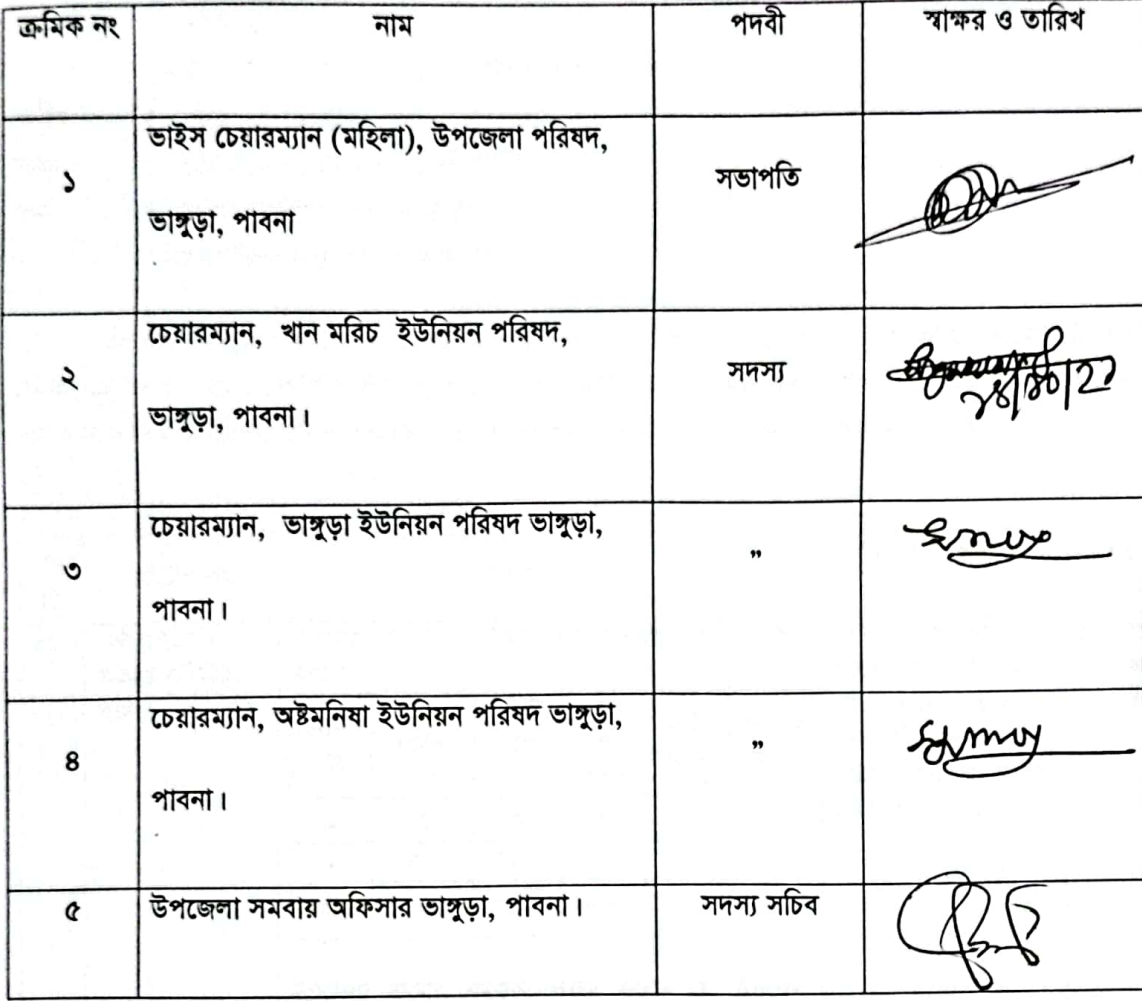 ক্রমিক নং নাম পদবী স্বাক্ষর ও তারিখ
ভাইস চেয়ারম্যান (মহিলা), উপজেলা পরিষদ,
১ সভাপতি
ভাঙ্গুড়া, পাবনা
চেয়ারম্যান, খান মরিচ ইউনিয়ন পরিষদ,
২ সদস্য
ভাঙ্গুড়া, পাবনা।
চেয়ারম্যান, ভাঙ্গুড়া ইউনিয়ন পরিষদ ভাঙ্গুড়া,
৩ ”
পাবনা।
চেয়ারম্যান, অষ্টমনিষা ইউনিয়ন পরিষদ ভাঙ্গুড়া,
৪ ”
পাবনা।
৫ উপজেলা সমবায় অফিসার ভাঙ্গুড়া, পাবনা। সদস্য সচিব